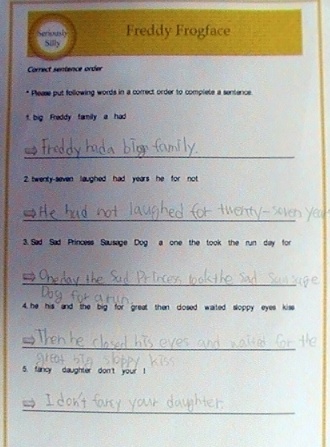 Seriously
Silly
Freddy Frogface
Correct sentence order
* Please put following words in a correct order to complete a sentence.
1. big Freddy family a had
⇨ Freddy had a big family.
2. twenty-seven laughed had years he for not
⇨ He had not laughed for twenty-seven years
3. Sad Sad Princess Sausage Dog a one the took the run day for
⇨ One day the Sad Princess took the Sad Sausage
Dog for a run.
4. he his and the big for great then closed waited sloppy eyes kiss
⇨ Then he closed his eyes and waited for the
great big sloppy kiss.
5. fancy daughter don't your I
⇨ I don't fancy your daughter.